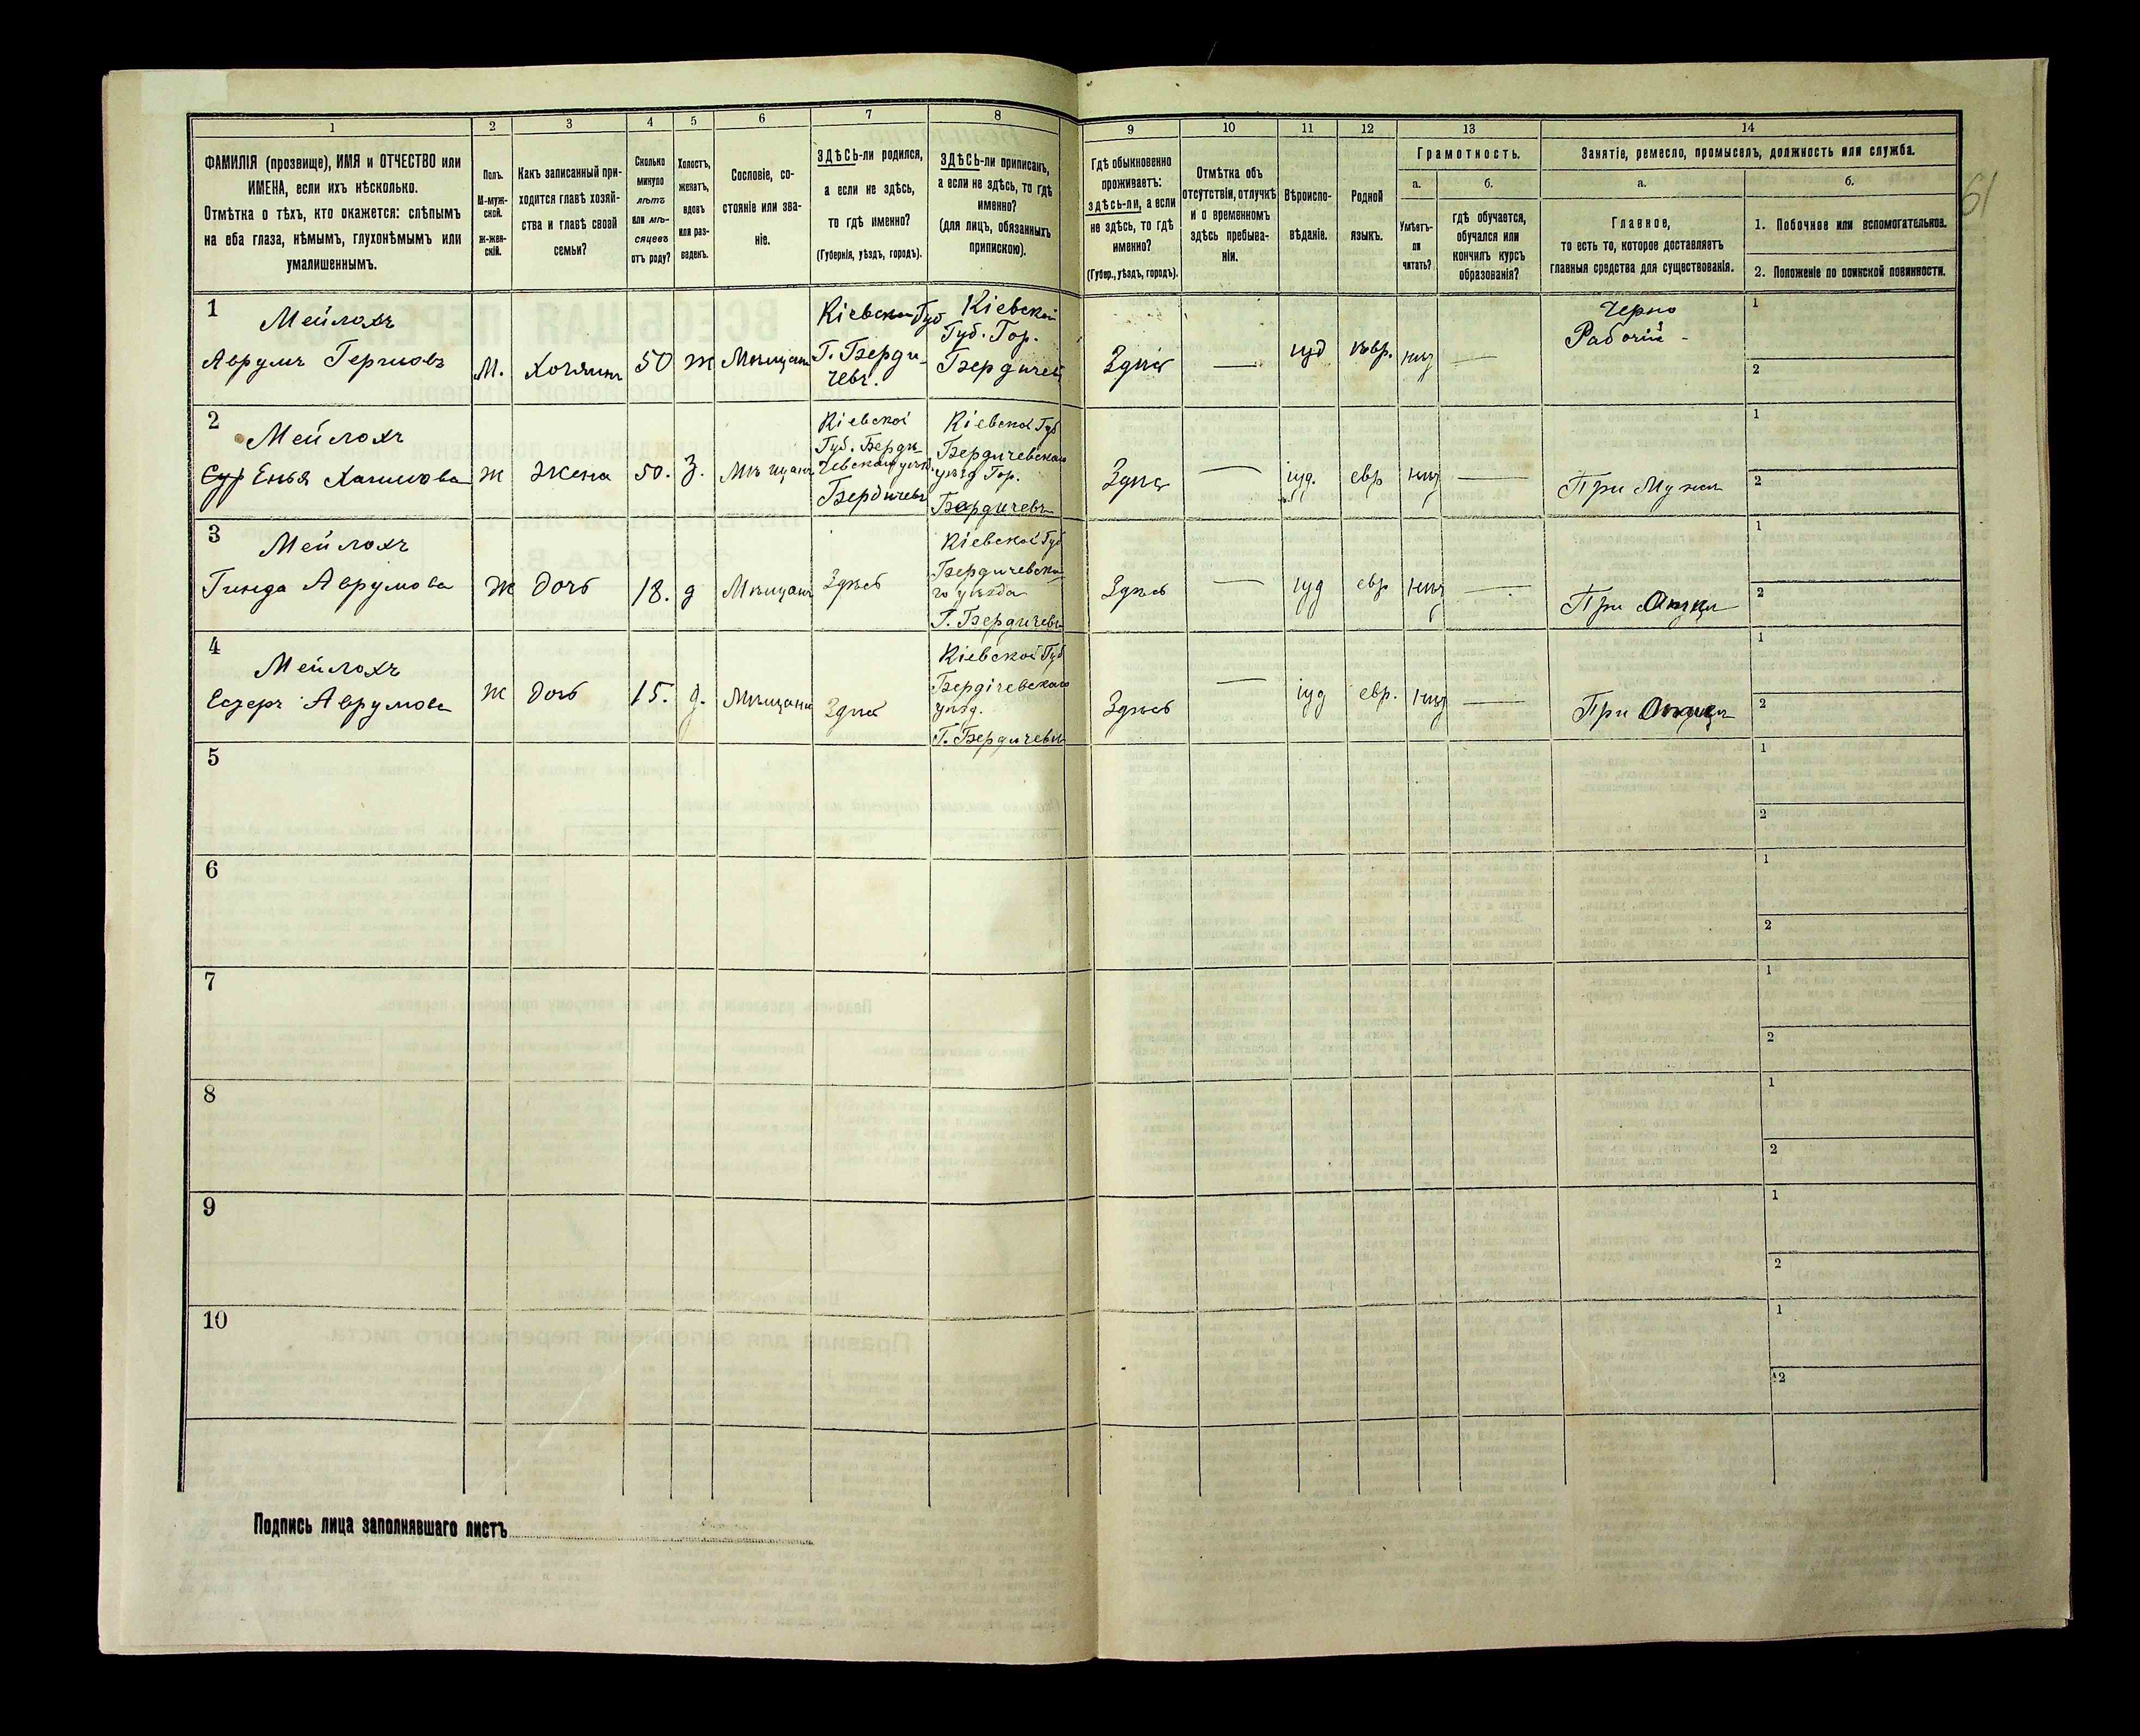 1 2 3 4 5 6 7 8 9 10 11 12 13 14
ФАМИЛІЯ (прозвище), ИМЯ и ОТЧЕСТВО или
ИМЕНА, если ихъ нѣсколько.
Отмѣтка о тѣхъ, кто окажется: слѣпымъ
на оба глаза, нѣмымъ, глухонѣмымъ или
умалишеннымъ.
Полъ.
М-муж-
ской.
ж-жен-
скій.
Какъ записанный при-
ходится главѣ хозяй-
ства и главѣ своей
семьи?
Сколько
минуло
лѣтъ
или мѣ-
сяцевъ
отъ роду?
Холостъ,
женатъ,
вдовъ
или раз-
веденъ.
Сословіе, со-
стояніе или зва-
ніе.
ЗДѢСЬ-ли родился,
а если не здѣсь,
то гдѣ именно?
(Губернія, уѣздъ, городъ).
ЗДѢСЬ-ли приписанъ,
а если не здѣсь, то гдѣ
именно?
(для лицъ, обязанныхъ
припискою).
Гдѣ обыкновенно
проживаетъ:
здѣсь-ли, а если
не здѣсь, то гдѣ
именно?
(Губер., уѣздъ, городъ).
Отмѣтка объ
отсутствіи, отлучкѣ
и о временномъ
здѣсь пребыва-
ніи.
Вѣроиспо-
вѣданіе.
Родной
языкъ.
Грамотность.
а.
Умѣетъ-
ли
читать?
б.
гдѣ обучается,
обучался или
кончилъ курсъ
образованія?
Занятіе, ремесло, промыселъ, должность или служба.
а.
Главное,
то есть то, которое доставляетъ
главныя средства для существованія.
б.
1. Побочное или вспомогательное.
2. Положеніе по воинской повинности.
61
1
Мейлохъ
Аврумъ Гершовъ
М.
Хозяинъ
50
ж
Мѣщани
Кіевской Губ
Г. Берди-
чевъ.
Кіевской
Губ. Гор.
Бердичев
Здѣсь
—
іуд
евр.
нѣт
—
Черно
Рабочій -
1
2
2
Мейлохъ
Енья Хаимова
ж
Жена
50.
З.
Мѣщан.
Кіевской
Губ. Берди
чевскаго уѣзд
Бердичевъ
Кіевской Губ
Бердичевскаго
уѣзд Гор.
Бердичевъ
Здѣсь
—
іуд.
евр
нѣт
—
При Мужѣ
1
2
3
Мейлохъ
Гинда Аврумова
Ж
дочь
18.
д
Мѣщан
Здѣсь
Кіевской Губ
Бердичевска
го уѣзда
Г. Бердичевъ
Здѣсь
—
іуд
евр
нѣт
—
При Отцѣ
1
2
4
Мейлохъ
Аврумова
ж
дочь
15.
д.
Мѣщани
Здѣсь
Кіевской Губ
Бердічевскаго
уѣзд.
Г. Бердичевъ
Здѣсь
—
іуд
евр.
нѣт
—
При Отцѣ
1
2
5
1
2
6
1
2
7
1
2
8
1
2
9
1
2
10
1
2
Подпись лица заполнявшаго листъ